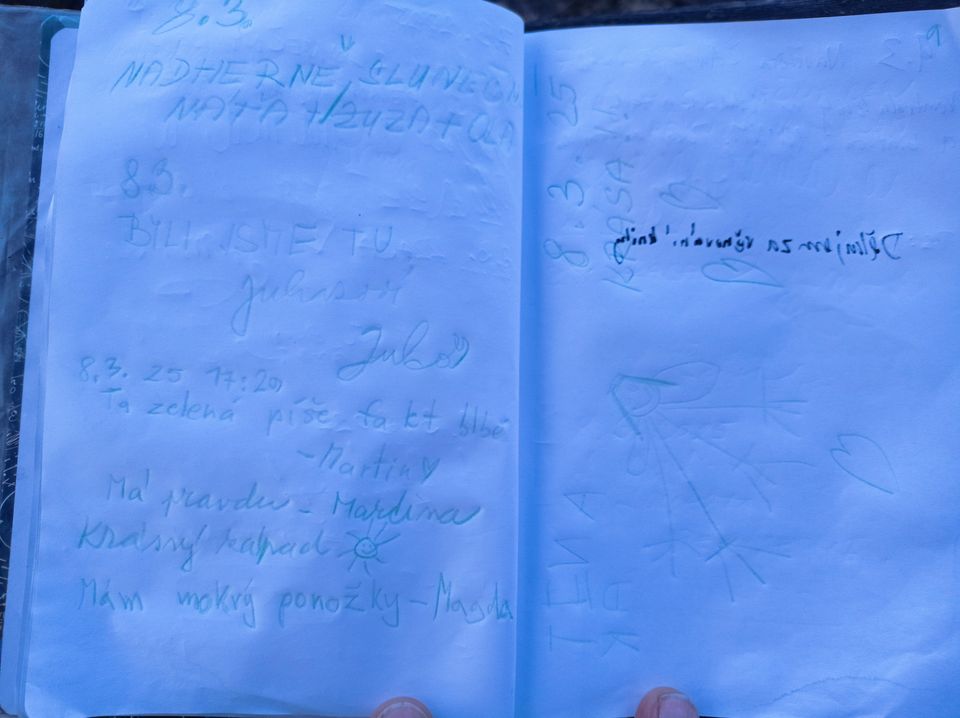 8.3.
NÁDHERNĚ SLUNEČN
NAŤA + ZUZA + OLA
8.3.
BILI JSME TU
Juhasovi
8.3. 25 17:20
Ta zelená píše fakt blbě
- Martin
Má pravdu - Mardina
Krásný západ
Mám mokrý ponožky - Magda
8.3 25
KRÁSA
Děkujem za věnování knihy